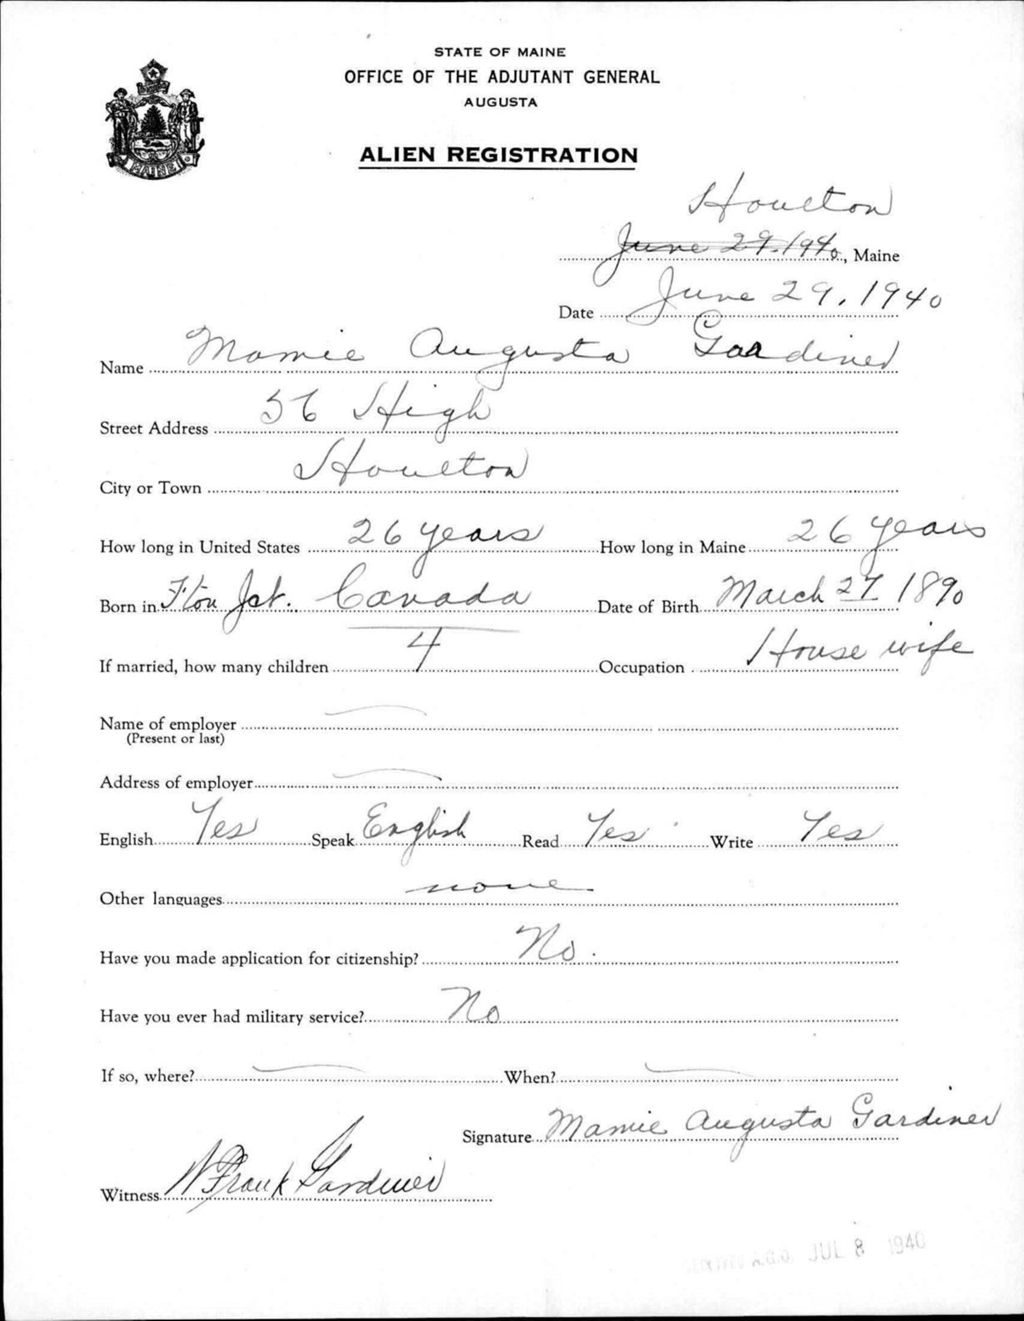 STATE OF MAINE
OFFICE OF THE ADJUTANT GENERAL
AUGUSTA
ALIEN REGISTRATION
MAINE
Houlton
June 29, 1940, Maine
Date June 29, 1940
Name Mamie Augusta Gardiner
Street Address 56 High
City or Town Houlton
How long in United States 26 years How long in Maine 26 years
Born in F'ton Jct. Canada Date of Birth March 27 1890
If married, how many children 4 Occupation House wife
Name of employer
(Present or last)
Address of employer
English Yes Speak English Read Yes Write Yes
Other languages none
Have you made application for citizenship? No.
Have you ever had military service? No
If so, where? When?
Signature Mamie Augusta Gardiner
Witness Frank Gardiner
A.G.O. JUL 8 1940